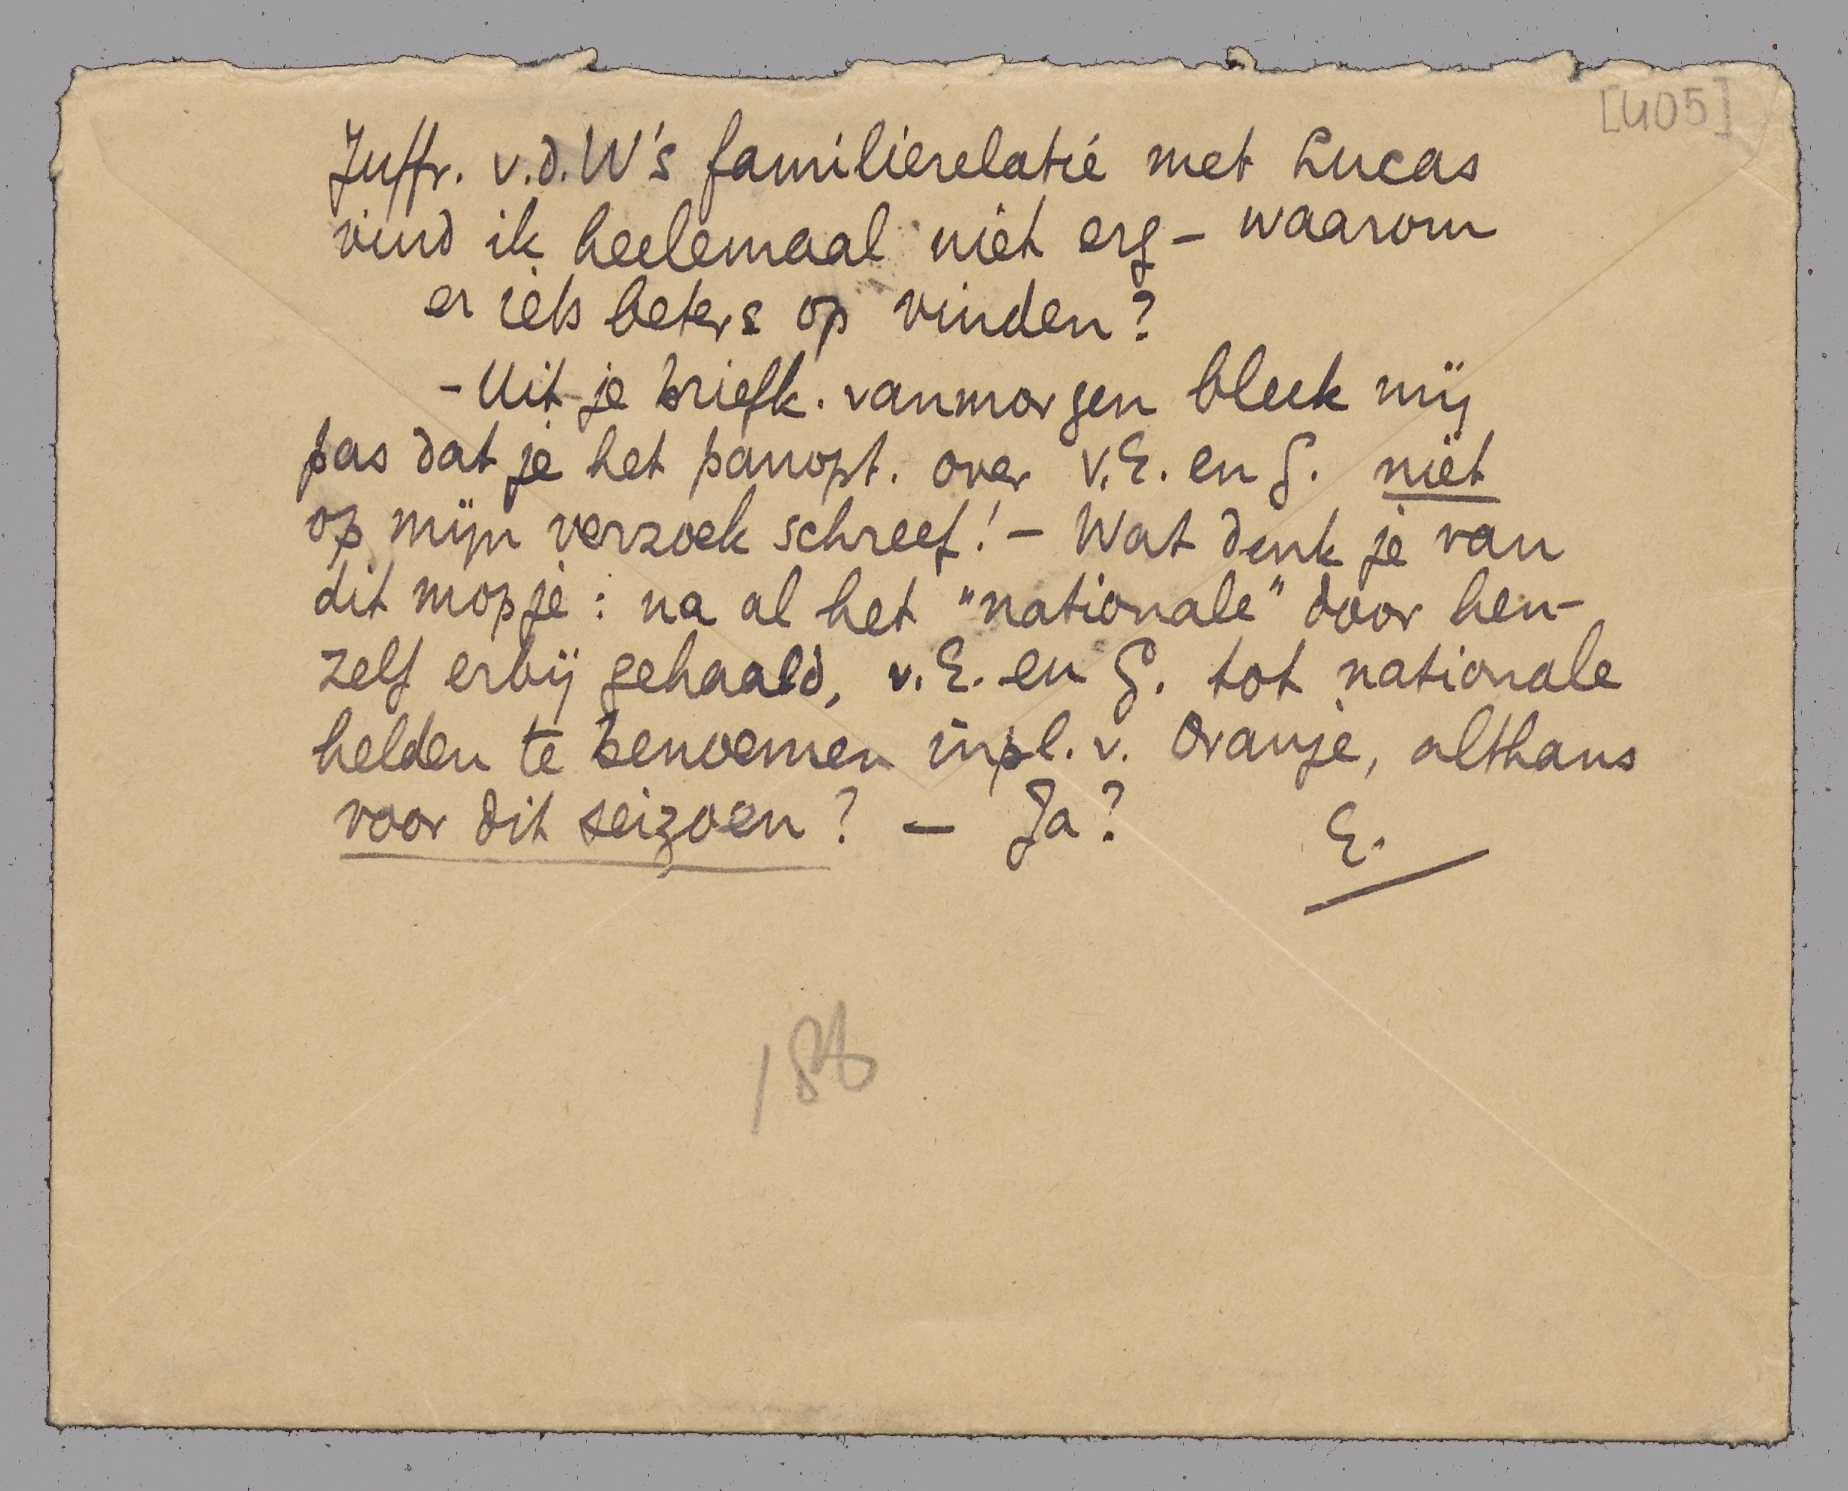 [405]
Juffr. v.d.W's familierelatie met Lucas
vind ik heelemaal niet erg – waarom
er iets beters op vinden?
– Uit je briefk. vanmorgen bleek mij
pas dat je het panopt. over v.E. en G. niet
op mijn verzoek schreef! – Wat denk je van
dit mopje: na al het "nationale" door hen-
zelf erbij gehaald, v.E. en G. tot nationale
helden te benoemen inpl. v. Oranje, althans
voor dit seizoen? – Ja? E.